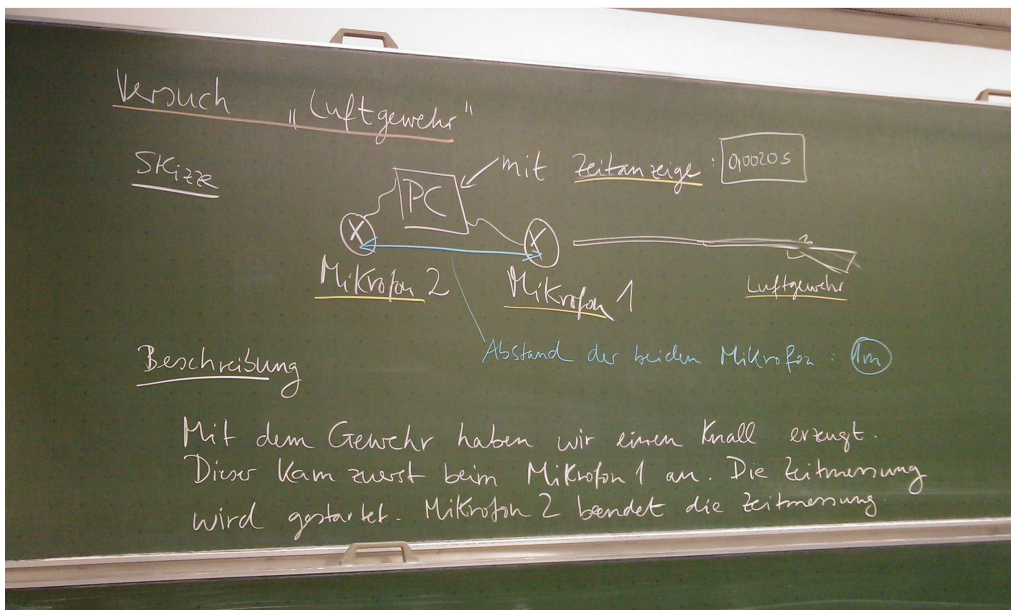 Versuch „Luftgewehr"
Skizze
PC
mit Zeitanzeige: 0,0020 s
X
X
Mikrofon 2
Mikrofon 1
Luftgewehr
Abstand der beiden Mikrofon: 1m
Beschreibung
Mit dem Gewehr haben wir einen Knall erzeugt.
Dieser kam zuerst beim Mikrofon 1 an. Die Zeitmessung
wird gestartet. Mikrofon 2 beendet die Zeitmessung.